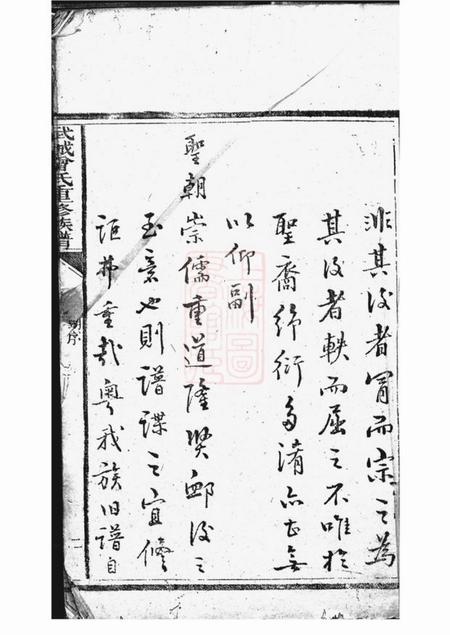 非其後者冒而宗之為
其後者軼而屈之不唯於
聖裔紛衍多淆亦且無
以仰副
聖朝崇儒重道隆賢卹後之
至意也則譜諜之宜修
詎弗重哉粵我族旧譜自
武城曾氏重修族譜
序
二